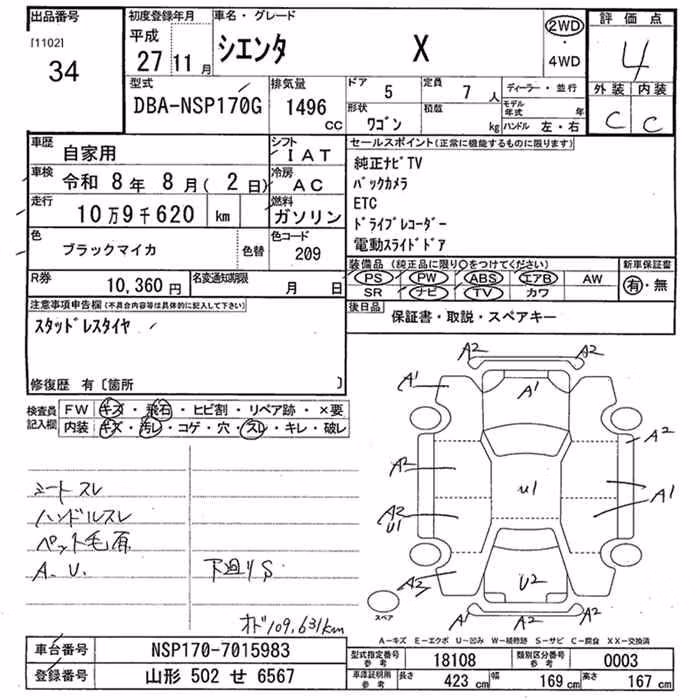 出品番号
[1102]
34
初度登録年月
平成
27年 11月
車名・グレード
シエンタ X
2WD
・
4WD
評価点
4
外装 内装
C C
型式
DBA-NSP170G
排気量
1496
CC
ドア 5
定員 7人
形状 ワゴン
積載 kg
ディーラー・並行
モデル年式 年
ハンドル 左・右
車歴 自家用
シフト IAT
車検 令和 8年 8月( 2日)
冷房 AC
走行 10万9千620 km
燃料 ガソリン
色 ブラックマイカ
色替
色コード 209
R券 10,360円
名変通知期限 月 日
セールスポイント(正常に機能するものに限ります)
純正ナビTV
バックカメラ
ETC
ドライブレコーダー
電動スライドドア
装備品(純正品に限り○をつけてください)
PS PW ABS エアB AW
SR ナビ TV カワ
新車保証書
有・無
後日品
保証書・取説・スペアキー
注意事項申告欄(不具合内容等は具体的に記入して下さい)
スタッドレスタイヤ
修復歴 有〔箇所 〕
検査員記入欄
FW キズ・飛石・ヒビ割・リペア跡・×要
内装 キズ・汚レ・コゲ・穴・スレ・キレ・破レ
シートスレ
ハンドルスレ
ペット毛有
A.U. 下廻りS
オド109,631km
A2 A2
A1 A1
A2
A2 U1 A1
A2
U1
A2 U2
A1 A2
スペア
A-キズ E-エクボ U-凹み W-補修跡 S-サビ C-腐食 XX-交換済
車台番号 NSP170-7015983
登録番号 山形 502 せ 6567
型式指定番号 参考 18108
類別区分番号 参考 0003
車庫証明用 参考
長さ 423 cm
幅 169 cm
高さ 167 cm